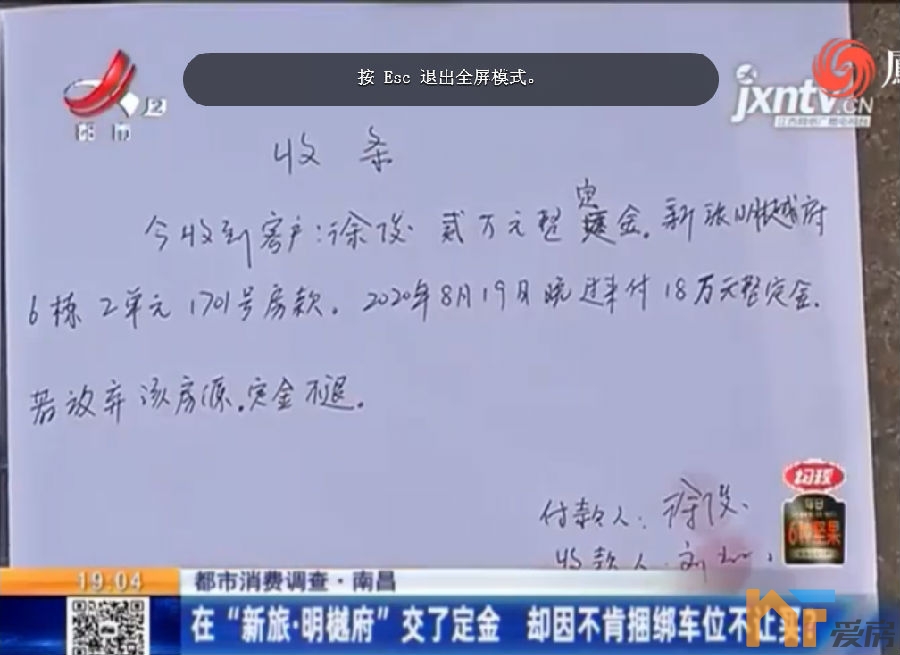 都市
2
按 Esc 退出全屏模式。
jxntv.CN
收条
今收到客户:徐俊 贰万元整定金。新旅明樾府
6栋2单元1701号房款。2020年8月19日晚 付18万元整定金。
若放弃该房源。定金不退。
付款人:徐俊
收款人:刘
均瑶
每日
6种坚果
19:04
都市消费调查·南昌
在“新旅·明樾府”交了定金 却因不肯捆绑车位不让买?
爱房